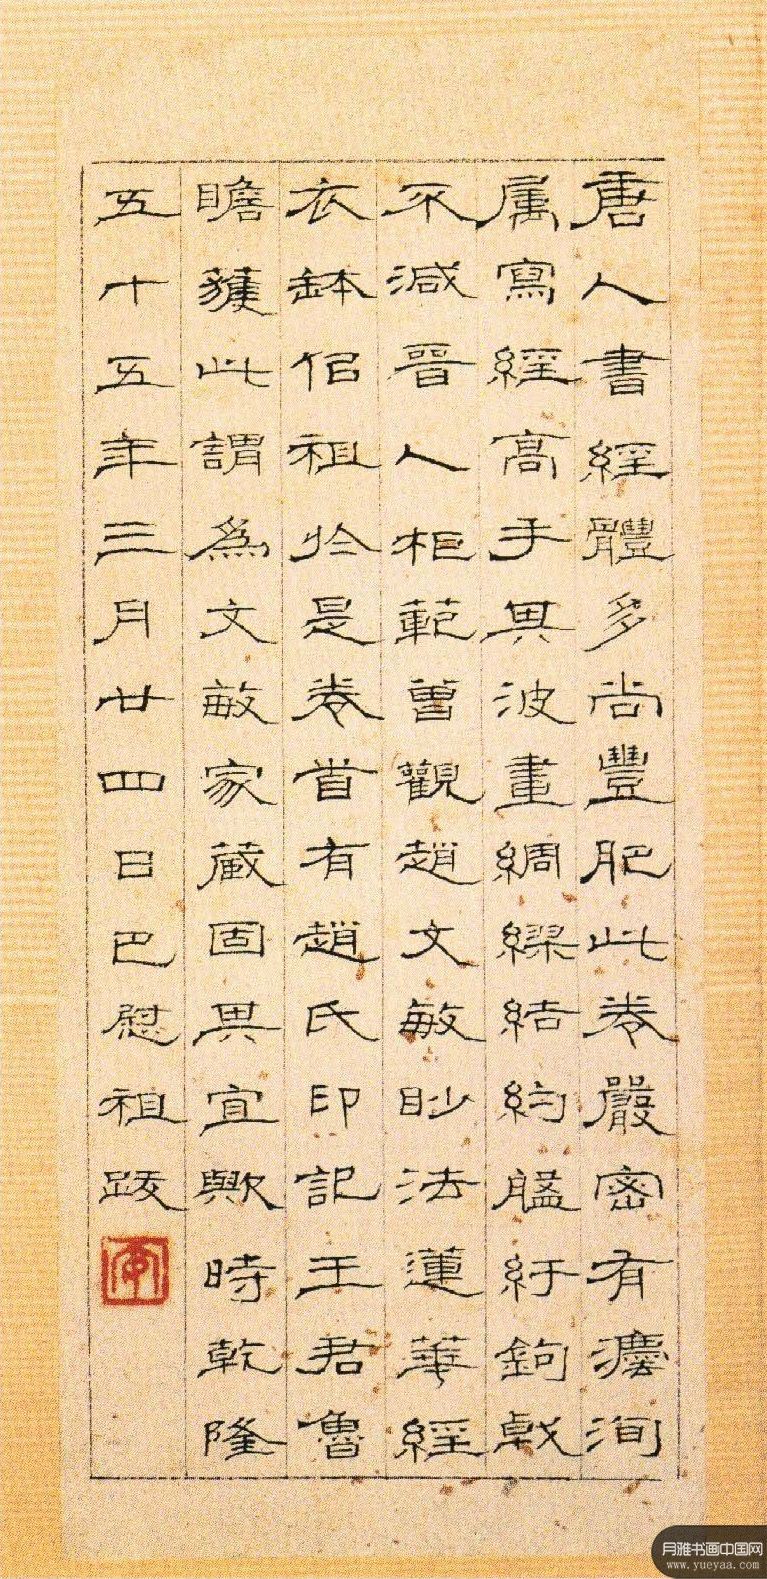 唐人書經體多尚豐肥此卷嚴密有灋洵
属寫經高手其波畫綢繆結約紆鉤戟
不減晉人柜範曾觀趙文敏眇法蓮華經
衣鉢佀祖於是卷首有趙氏印記王君魯
瞻獲此謂為文敏家藏固其宜歟時乾隆
五十五年三月廿四日巴慰祖跋
月雅书画中国网
www.yueyaa.com